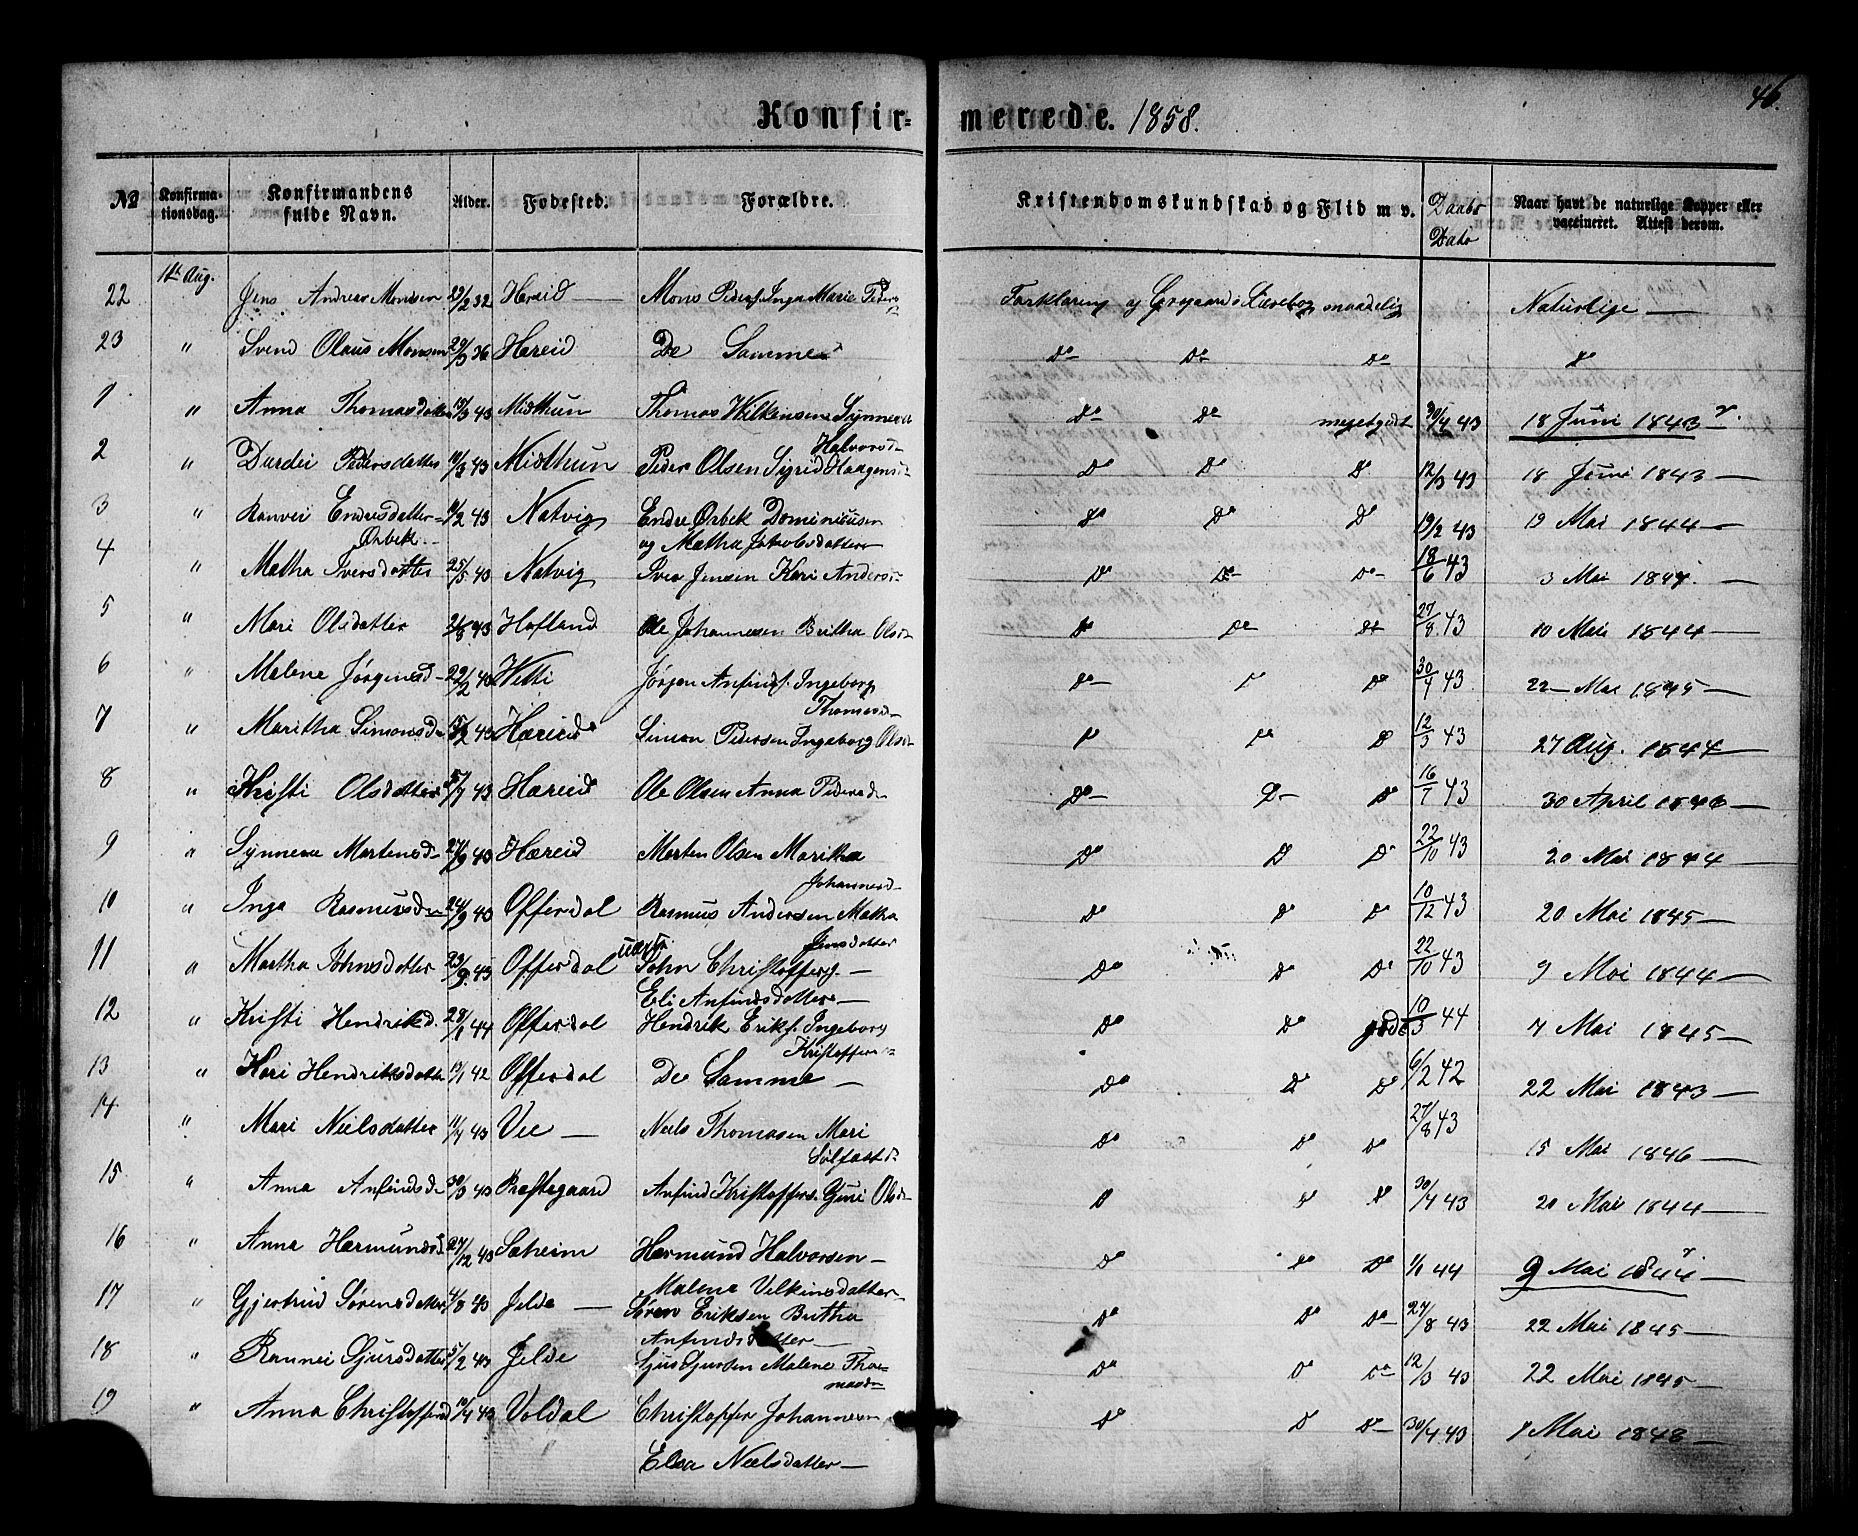 46.
Konfir- merede. 1858.
No Konfirmationsdag. Konfirmandens fulde Navn. Alder. Fødested. Forældre. Kristendomskundskab og Flid m v. Daabs Dato Naar havt de naturlige Kopper eller vaccineret. Attest derom.
22 Aug. Jens Andreas Monsen 32 Hæreid — Mons Peders. Inga Marie Peders Forklaring og Lærebog maadelig Naturlige —
23 " Svend Olaus Monsen 36 Hæreid De Samme do do do do
1 " Anna Thomasdatter 43 Midthun Thomas Wilkensen Synneva do do meget godt 30/4 43 18 Juni 1843
Halvorsd.
2 " Durdei Pedersdatter 43 Midthun Peder Olsen Sigrid Haagensd. do do do 12/3 43 18 Juni 1843 —
3 " Ranvei Endresdatter 43 Natvig Endre Ørbek Dominicusen do do do 19/2 43 19 Mai 1844 —
Ørbek og Mætha Jakobsdatter
4 " Metha Iversdatter 25/5 43 Natvig Iver Jensen Kari Anders do do do 18/6 43 3 Mai 1844 —
5 " Mari Olsdatter 43 Hofland Ole Johannesen Britha Olsd do do do 27/8 43 10 Mai 1844 —
6 " Malene Jørgensd 43 Vetti Jørgen Anfinds. Ingeborg do do do 30/4 43 22 Mai 1845 —
Thomasd
7 " Maritha Simonsd 43 Hæreid Simon Pedersen Ingeborg Olsd do do do 12/3 43 27 Aug. 1844 —
8 " Kristi Olsdatter 5/7 43 Hæreid Ole Olsen Anna Pedersd do do do 16/7 43 30 April 1846 —
9 " Synneva Martensd 27/9 43 Hæreid Morten Olsen Maritha do do do 22/10 43 20 Mai 1844 —
Johannesd
10 " Inga Rasmusd 24/9 43 Offerdal Rasmus Andersen Metha do do do 10/12 43 20 Mai 1845 —
Jensdatter
11 " Martha Johnsdatter 23/9 43 Offerdal uægte John Christoffers. — do do 22/10 43 9 Mai 1844 —
Eli Anfindsdatter —
12 " Kristi Hendriksd. 28/1 44 Offerdal Hendrik Eriks. Ingeborg do do godt 10/3 44 7 Mai 1845 —
Kristoffers
13 " Kari Hendriksdatter 42 Offerdal De Samme — do do do 6/2 42 22 Mai 1843 —
14 " Mari Nielsdatter 43 Vee — Niels Thomasen Mari do do do 27/8 43 15 Mai 1846 —
Sølfæstd
15 " Anna Anfindsd 30/3 43 Præstegaard Anfind Kristoffers. Guri Olsd do do do 30/4 43 20 Mai 1844 —
16 " Anna Hermunds 27/12 43 Sæheim Hermund Halvorsen — do do do 1/1 44 9 Mai 1844 —
Malene Vilkinsdatter
17 " Gjertrud Sørensdatter 4/8 43 Jelde — Søren Eriksen Britha do do do 27/8 43 22 Mai 1845 —
Anfindsdatter —
18 " Rannei Sjursdatter 5/2 43 Jelde Sjur Sjursen Malene Tho- do do do 12/3 43 22 Mai 1845 —
masd
19 " Anna Christoffersd 43 Voldal Christopher Johannesen do do do 30/4 43 7 Mai 1848 —
Elsa Nielsdatter —